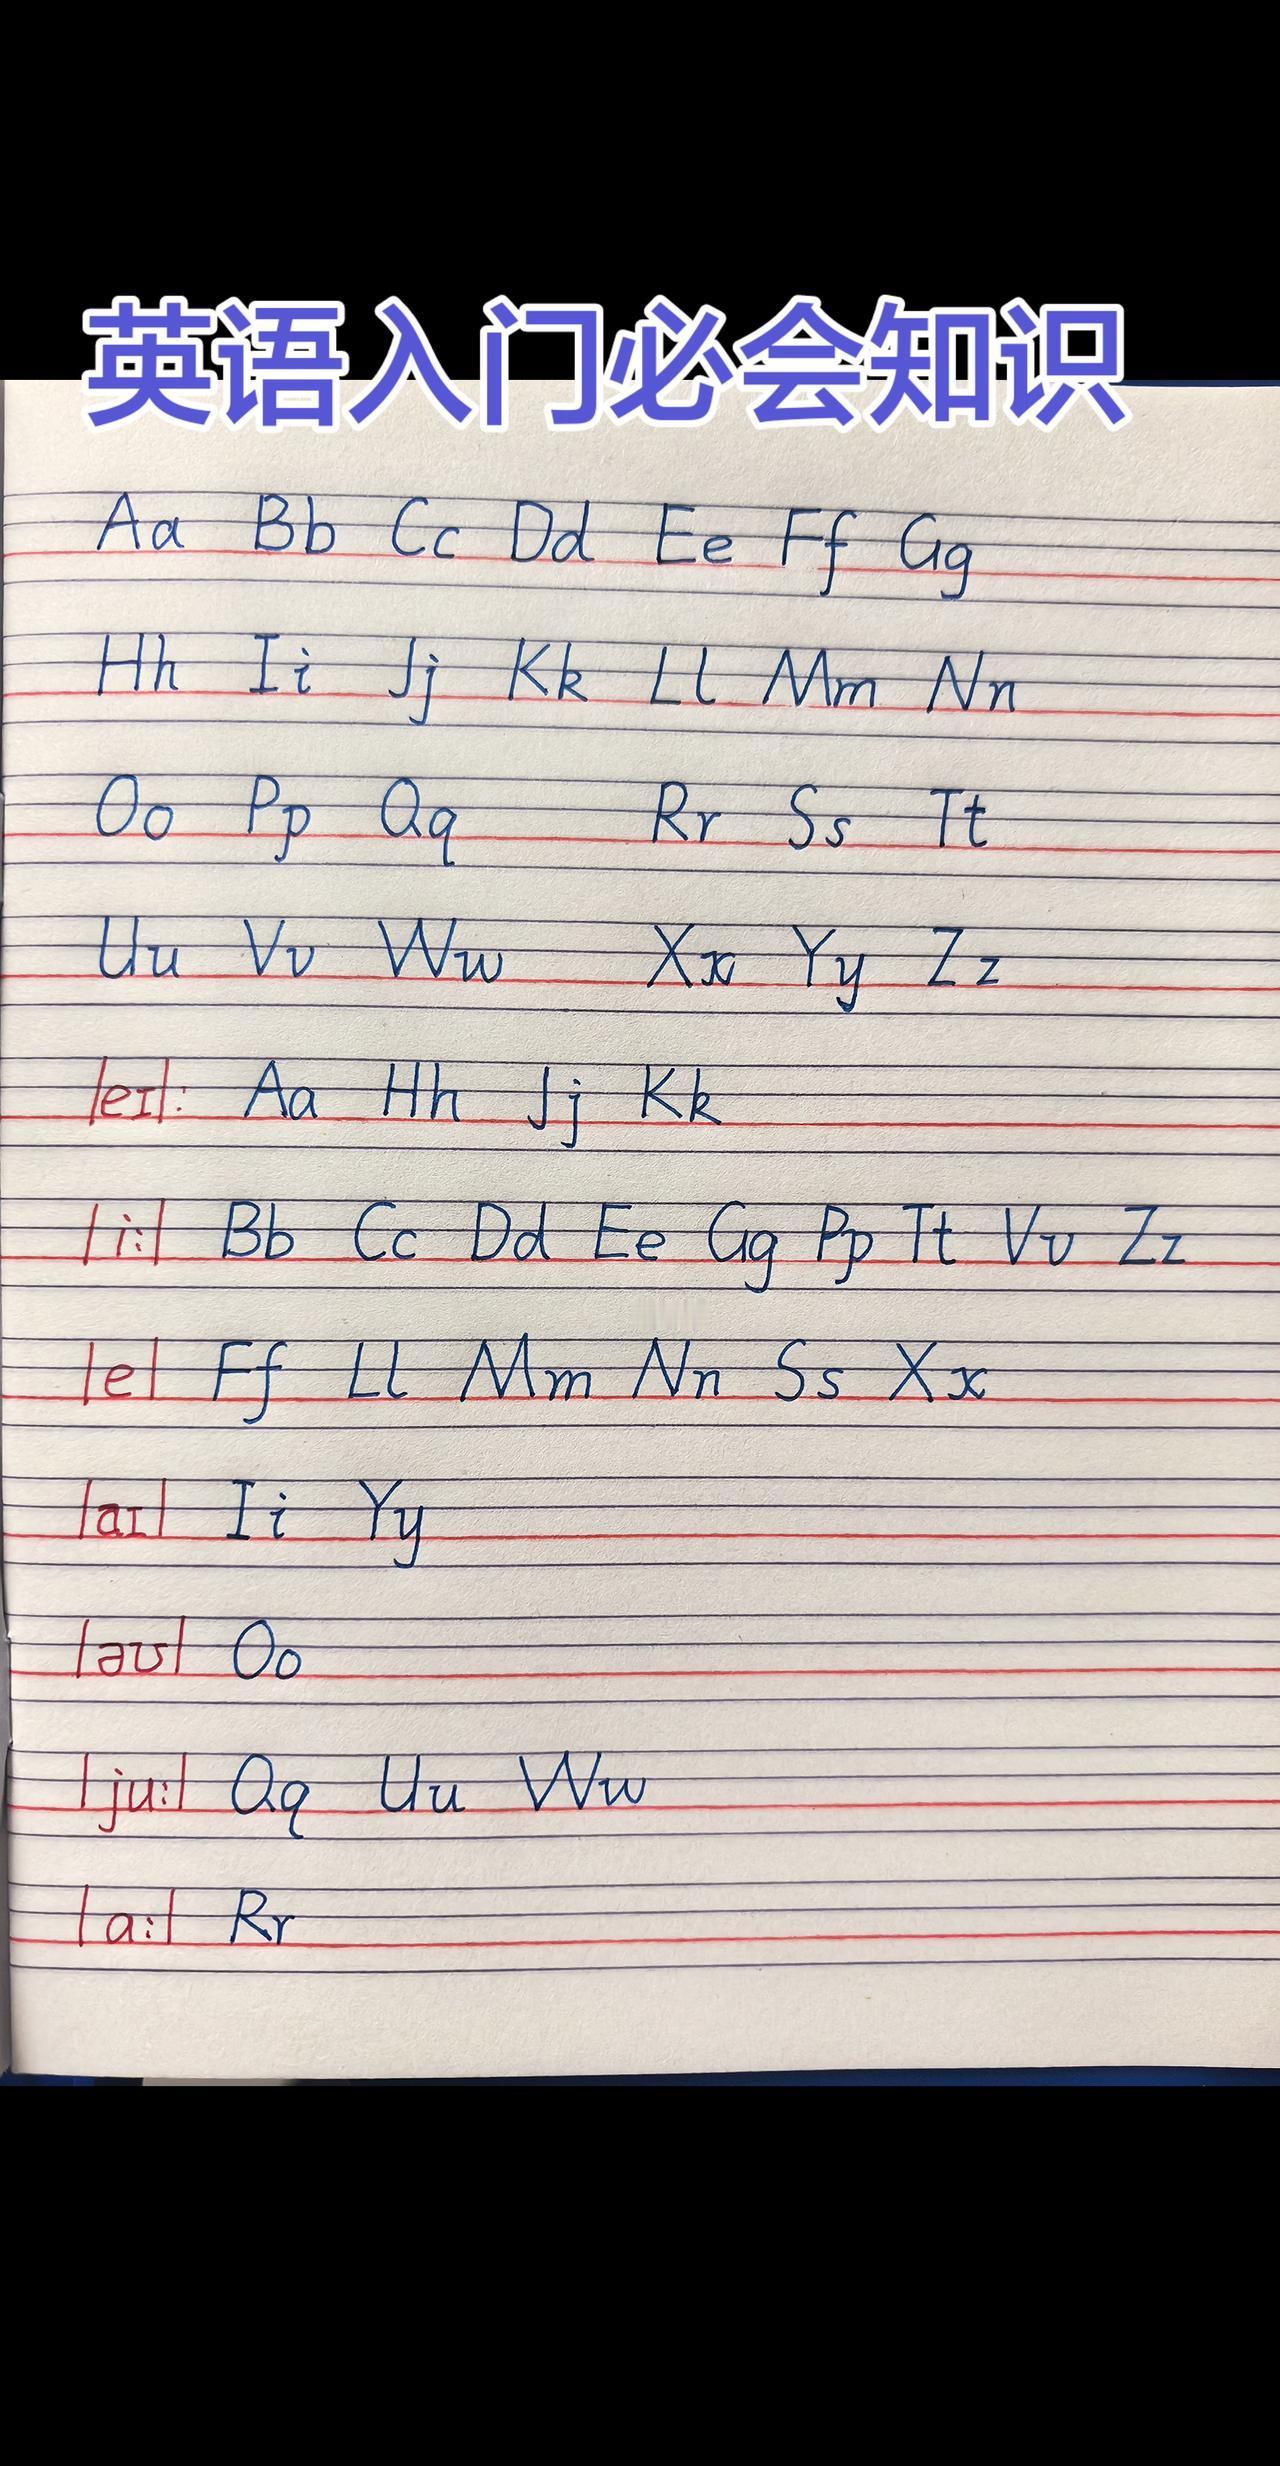 英语入门必会知识
Aa Bb Cc Dd Ee Ff Gg
Hh Ii Jj Kk Ll Mm Nn
Oo Pp Qq Rr Ss Tt
Uu Vv Ww Xx Yy Zz
/eɪ/: Aa Hh Jj Kk
/i:/ Bb Cc Dd Ee Gg Pp Tt Vv Zz
/e/ Ff Ll Mm Nn Ss Xx
/aɪ/ Ii Yy
/əʊ/ Oo
/ju:/ Qq Uu Ww
/a:/ Rr